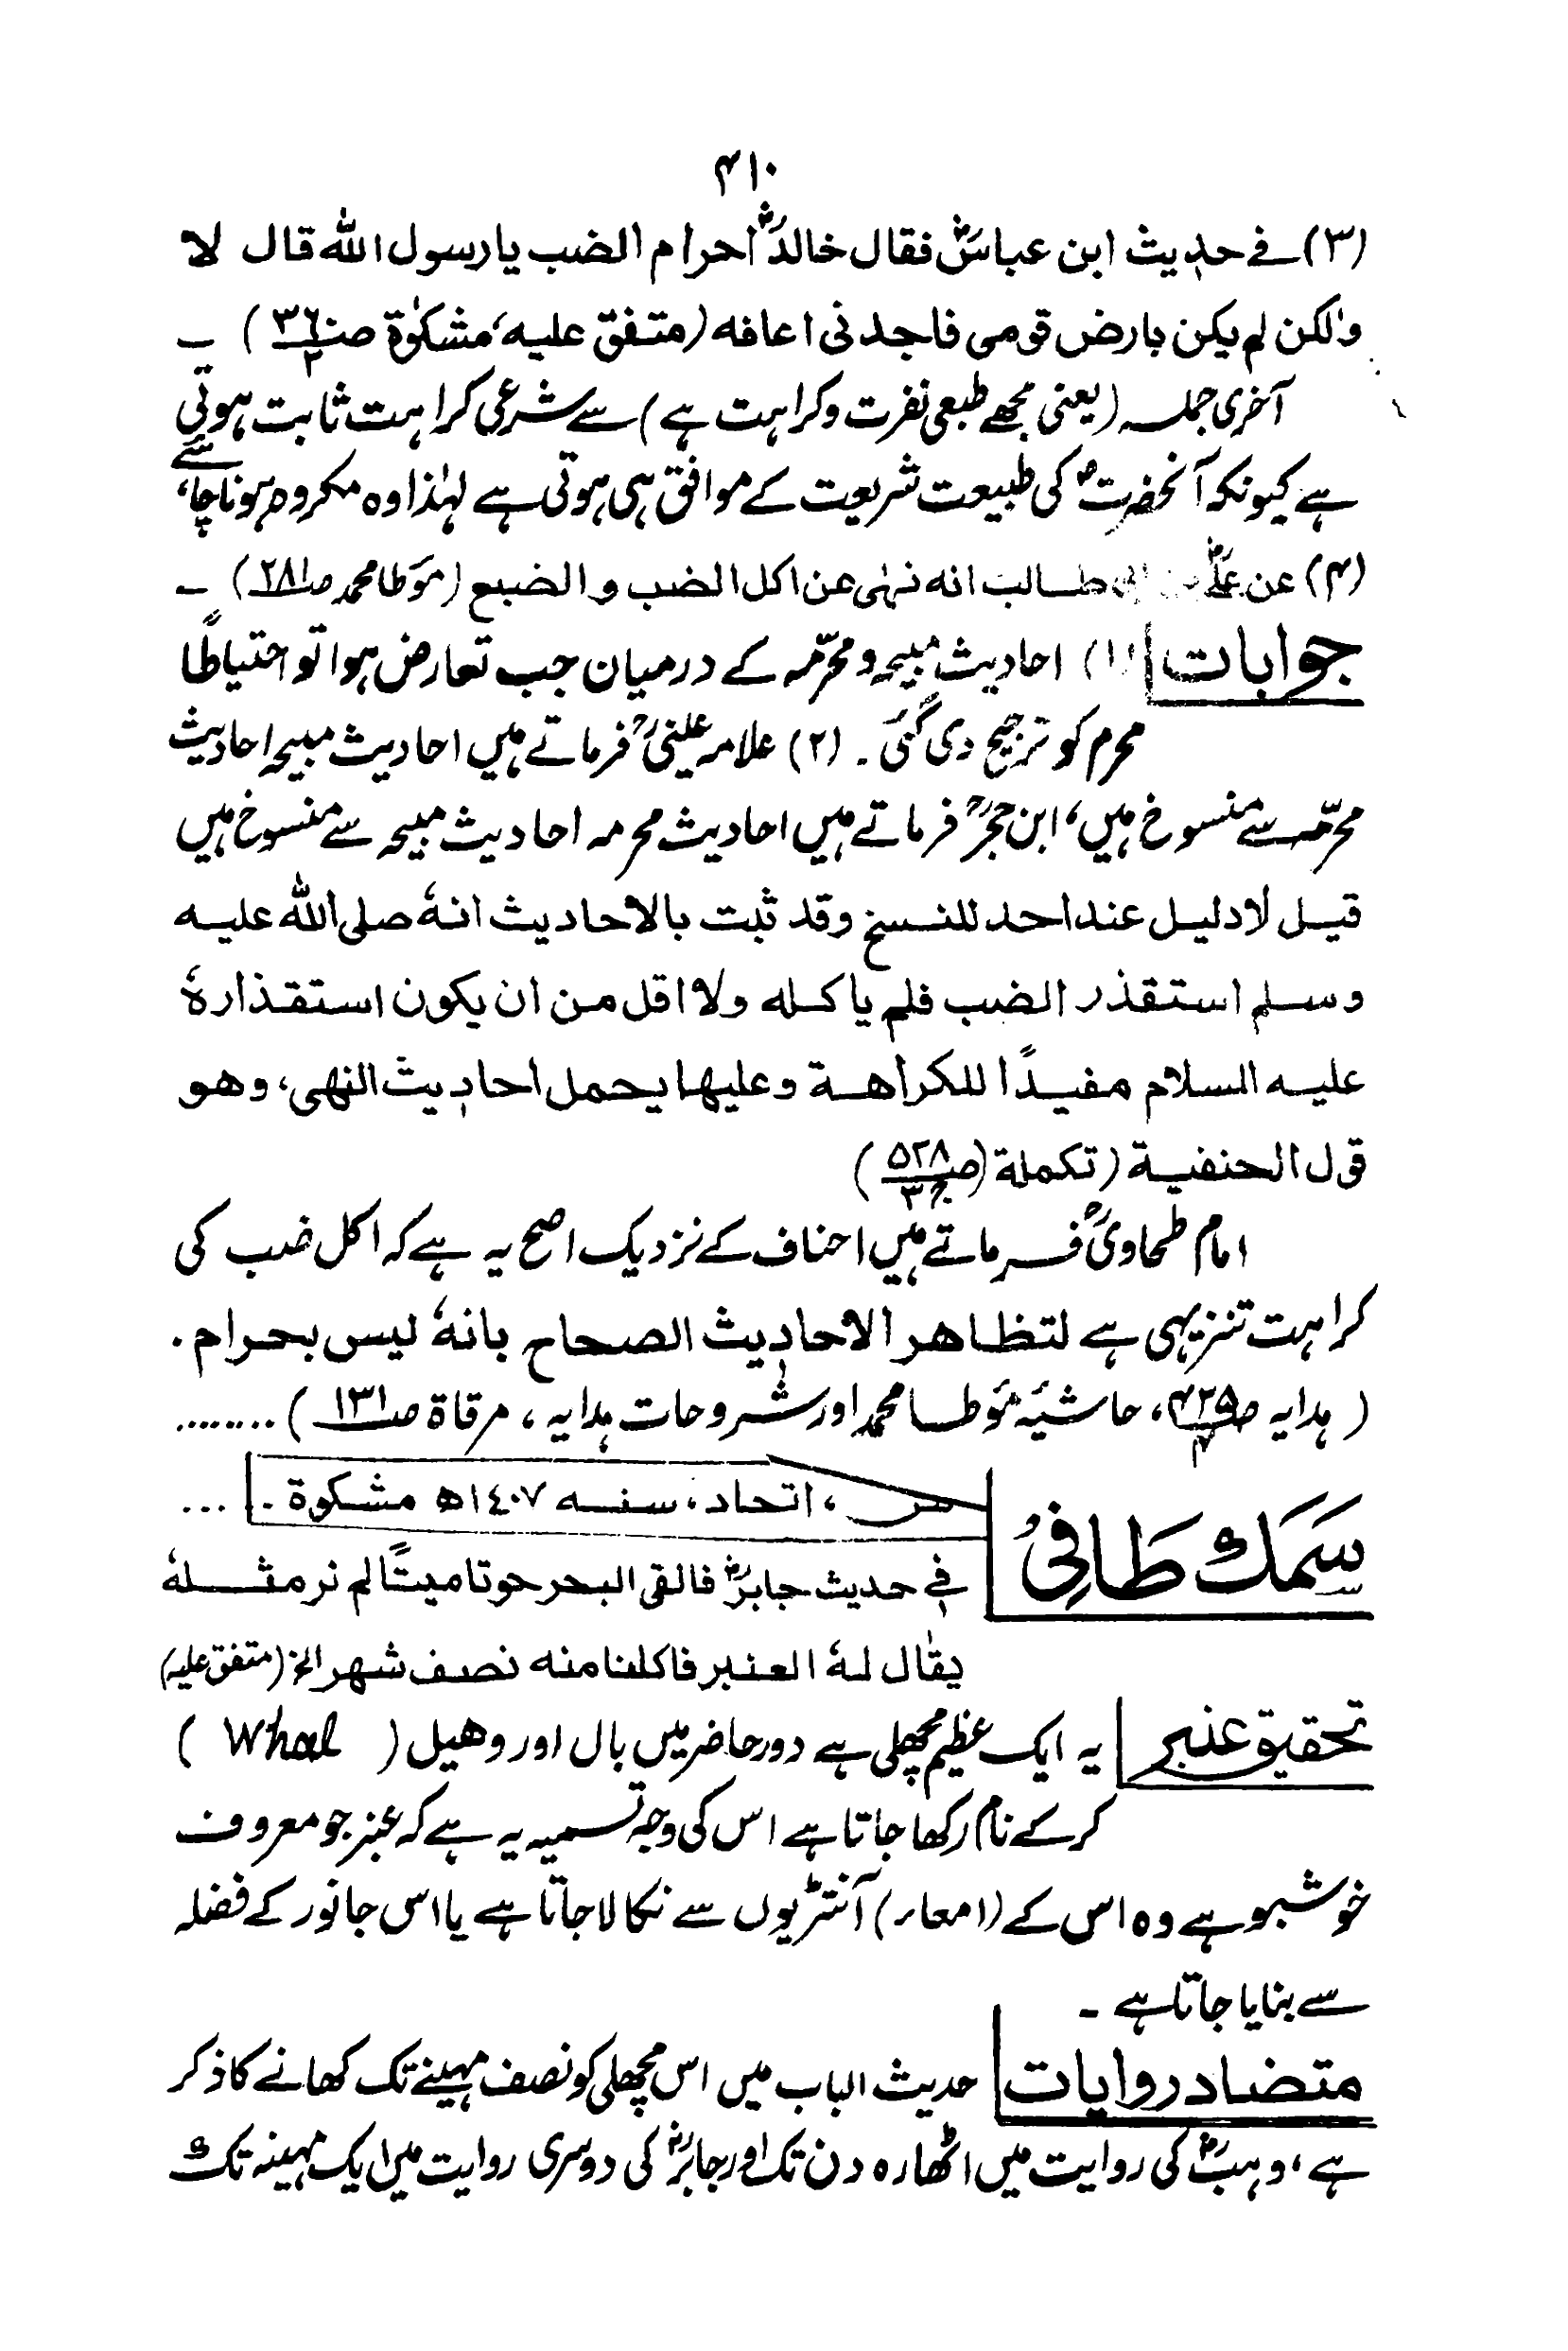 ۴۱۰
(۳) فے حدیث ابن عباسؓ فقال خالدؓ احرام الضب یا رسول اللہ قال لا
ولٰکن لم یکن بارض قومی فاجدنی اعافه (متفق علیه، مشکوٰۃ صـ۳۶۰/۲) ـ
آخری جملہ (یعنی مجھے طبعی نفرت وکراہت ہے) سے شرعی کراہت ثابت ہوتی
ہے کیونکہ آنحضرتؐ کی طبیعت شریعت کے موافق ہی ہوتی ہے لہٰذا وہ مکروہ ہونا چاہئے
(۴) عن علیؓ بن ابی طالب انه نہٰی عن اکل الضب والضبع (مؤطا محمد صـ۲۸۱) ـ
جوابات (۱) احادیث مبیحہ و محرّمہ کے درمیان جب تعارض ہوا تو احتیاطًا
محرم کو ترجیح دی گئی۔ (۲) علامہ عینیؒ فرماتے ہیں احادیث مبیحہ احادیث
محرّمہ سے منسوخ ہیں، ابن حجرؒ فرماتے ہیں احادیث محرمہ احادیث مبیحہ سے منسوخ ہیں
قیل لا دلیل عند احد للنسخ وقد ثبت بالاحادیث انهٗ صلی اللہ علیه
وسلم استقذر الضب فلم یاکله ولا اقل من ان یکون استقذارهٗ
علیه السلام مفیدًا للکراهة وعلیها یحمل احادیث النهی، وهو
قول الحنفیة (تکملة (صـ۵۲۸/ج۳)
امام طحاویؒ فرماتے ہیں احناف کے نزدیک اصح یہ ہے کہ اکل ضب کی
کراہت تنزیہی ہے لتظاهر الاحادیث الصحاح بانهٗ لیس بحرام۔
(ہدایہ صـ۴۲۵/۴، حاشیۂ مؤطا محمد اور شروحات ہدایہ، مرقاة صـ۱۳۱) ........
سَمَك طَافِیْ س، اتحاد، سنه ۱٤۰۷ھ مشکوة ۔ ...
فی حدیث جابرؓ فالقی البحر حوتا میتًا لم نر مثلهٗ
یقال لهٗ العنبر فاکلنا منه نصف شهر الخ (متفق علیہ)
تحقیق عنبر یہ ایک عظیم مچھلی ہے دور حاضر میں بال اور وھیل (Whal)
کرکے نام رکھا جاتا ہے اس کی وجہ تسمیہ یہ ہے کہ عنبر جو معروف
خوشبو ہے وہ اس کے (امعاء) آنتڑیوں سے نکالا جاتا ہے یا اس جانور کے فضلہ
سے بنایا جاتا ہے ۔
متضاد روایات حدیث الباب میں اس مچھلی کو نصف مہینے تک کھانے کا ذکر
ہے، وہبؓ کی روایت میں اٹھارہ دن تک اور جابرؓ کی دوسری روایت میں ایک مہینہ تک